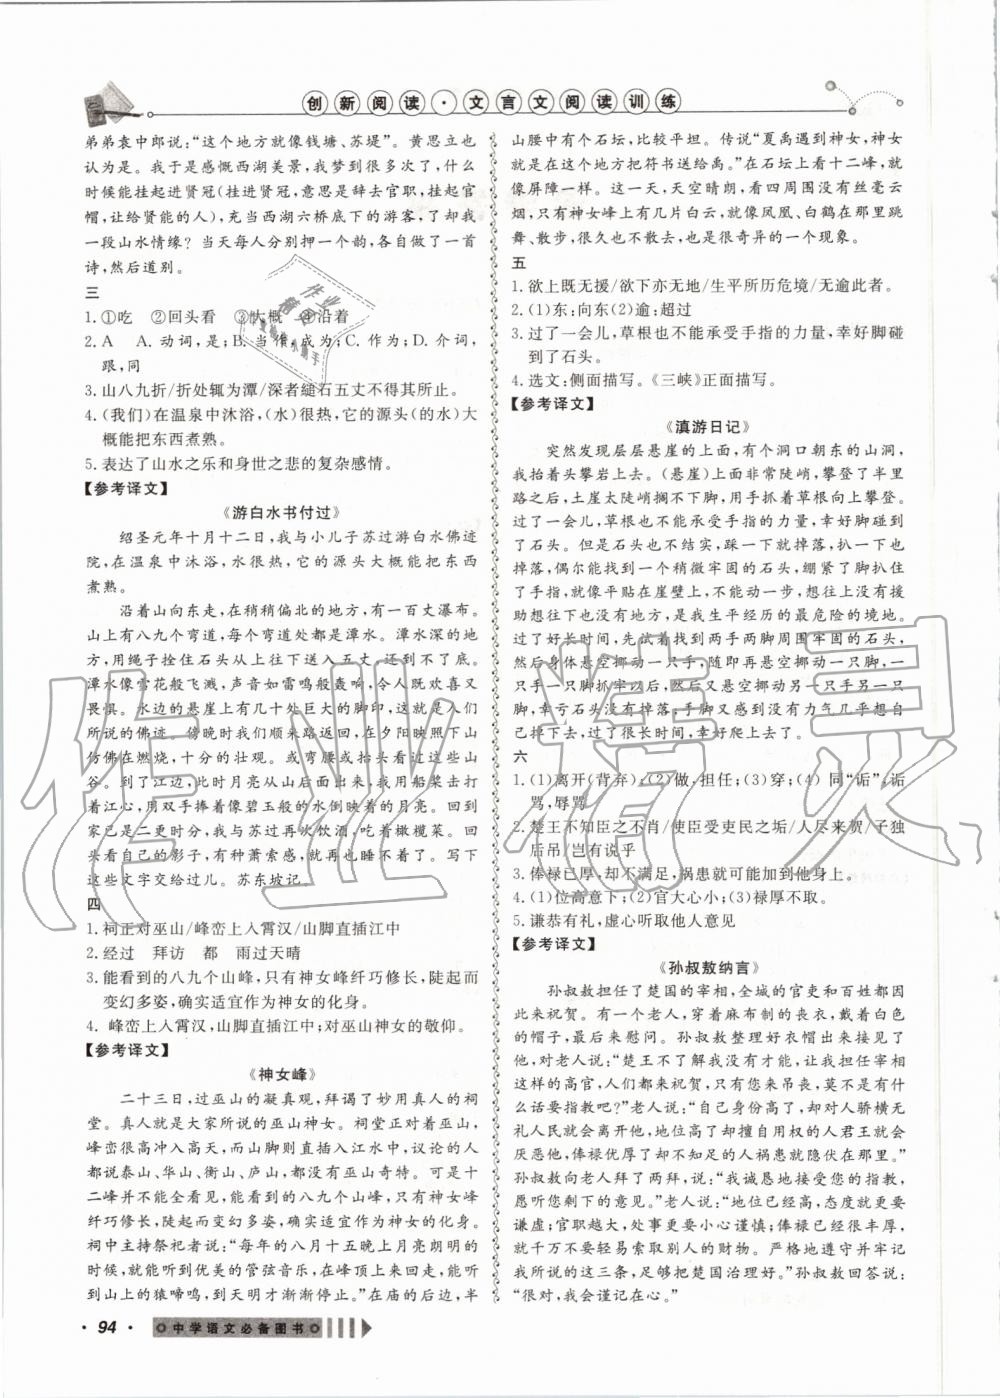 创新阅读·文言文阅读训练
弟弟袁中郎说:“这个地方就像钱塘、苏堤”。黄思立也
认为是。我于是感慨西湖美景,我梦到很多次了,什么
时候能挂起进贤冠(挂进贤冠,意思是辞去官职,挂起官
帽,让给贤能的人),充当西湖六桥底下的游客,了却我
一段山水情缘?当天每人分别押一个韵,各自做了一首
诗,然后道别。
三
1.①吃 ②回头看 ③大概 ④沿着
2.A A.动词,是;B.当作,成为;C.作为;D.介词,
跟,同
3.山八九折/折处辄为潭/深者缒石五丈不得其所止。
4.(我们)在温泉中沐浴,(水)很热,它的源头(的水)大
概能把东西煮熟。
5.表达了山水之乐和身世之悲的复杂感情。
【参考译文】
《游白水书付过》
绍圣元年十月十二日,我与小儿子苏过游白水佛迹
院,在温泉中沐浴,水很热,它的源头大概能把东西
煮熟。
沿着山向东走,在稍稍偏北的地方,有一百丈瀑布。
山上有八九个弯道,每个弯道处都是潭水。潭水深的地
方,用绳子拴住石头从这里送入五丈,还到不了底。
潭水像雪花般飞溅,声音如雷鸣般轰响,令人既欢喜又
畏惧。水边的悬崖上有几十处巨大的脚印,这就是人们
所说的佛迹。傍晚时我们顺来路返回,在夕阳映照下山
仿佛在燃烧,十分的壮观。或弯腰或抬头经过这些山
谷。到了江边,此时月亮从山后面出来,我用船桨击打
着江心,用双手捧着像碧玉般的水倒映着的月亮。回到
家已是二更时分,我与苏过再次饮酒,吃着橄榄菜。回
头看自己的影子,有种萧索感,就再也睡不着了。写下
这些文字交给过儿。苏东坡记。
四
1.祠正对巫山/峰峦上入霄汉/山脚直插江中
2.经过 拜访 都 雨过天晴
3.能看到的八九个山峰,只有神女峰纤巧修长,陡起而
变幻多姿,确实适宜作为神女的化身。
4.峰峦上入霄汉,山脚直插江中;对巫山神女的敬仰。
【参考译文】
《神女峰》
二十三日,过巫山的凝真观,拜谒了妙用真人的祠
堂。真人就是大家所说的巫山神女。祠堂正对着巫山,
峰峦很高冲入高天,而山脚则直插入江水中,议论的人
都说泰山、华山、衡山、庐山,都没有巫山奇特。可是十
二峰并不能全部看见,能看到的八九个山峰,只有神女峰
纤巧修长,陡起而变幻多姿,确实适宜作为神女的化身。
祠中主持祭祀者说:“每年的八月十五晚上月亮明朗的
时候,就能听到优美的管弦音乐,在峰顶上来来往往,
那些山上的猿啼鸣,到天明才渐渐停止。”在庙的后边,半
山腰中有个石坛,比较平坦。传说“夏禹遇到神女,神女
就是在这个地方把符书送给禹。”在石坛上看十二峰,就
像屏障一样。这一天,天空晴朗,看四周围没有丝毫云
烟,只有神女峰上有几片白云,就像凤凰、白鹤在那里跳
舞、散步,很久也不散去,也是很奇异的一个现象。
五
1.欲上既无援/欲下亦无地/生平所历危境/无逾此者。
2.(1)东:向东(2)逾:超过
3.过了一会儿,草根也不能承受手指的力量,幸好脚碰
到了石头。
4.选文:侧面描写。《三峡》正面描写。
【参考译文】
《滇游日记》
突然发现层层悬崖的上面,有个洞口朝东的山洞,
我抬着头攀岩上去。(悬崖)上面非常陡峭,攀登了半里
路之后,土崖太陡峭搁不下脚,用手抓着草根向上攀登。
过了一会儿,草根也不能承受手指的力量,幸好脚碰到
了石头。但是石头也不结实,踩一下就掉落,扒一下也
掉落,偶尔能找到一个稍微牢固的石头,绷紧了脚扒住
了手指,就像平贴在崖壁上,不能动一步,想往上没有援
助想往下也没有地方,是我生平经历的最危险的境地。
过了好长时间,先试着找到两手两脚周围牢固的石头,
然后身体悬空挪动一只手,随即再悬空挪动一只脚,一
只手一只脚抓牢以后,然后又悬空挪动另一只手另一只
脚,幸亏石头没有掉落;掉落时又因为没有力气几乎想自
己掉下去,过了很长时间,幸好爬上去了。
六
1.(1)离开(背弃);(2)做,担任;(3)穿;(4)同“诟”,诟
骂,辱骂
2.楚王不知臣之不肖/使臣受吏民之垢/人尽来贺/子独
后吊/岂有说乎
3.俸禄已厚,却不满足,祸患就隐伏在那里。
4.(1)位高意下;(2)官大心小;(3)禄厚不取。
5.谦恭有礼,虚心听取他人意见
【参考译文】
《孙叔敖纳言》
孙叔敖担任了楚国的宰相,全城的官吏和百姓都因
此来祝贺。有一个老人,穿着麻布制的丧衣,戴着白色
的帽子,最后来慰问。孙叔敖整理好衣帽出来接见了
他,对老人说:“楚王不了解我没有才能,让我担任宰相
这样的高官,人们都来祝贺,只有您来吊丧,莫不是有什
么话要指教吧?”老人说:“自己身份高了却对人骄横无
礼人民就会离开他,地位高了却擅自用权的人君王就会
厌恶他,俸禄优厚却不知足的人祸患就会隐伏在那里。”
孙叔敖向老人拜了两拜,说:“我诚恳地接受您的指教,
愿听您剩下的意见。”老人说:“地位已经高,态度就更要
谦虚;官职越大,处事更要小心谨慎;俸禄已经很丰厚,
就千万不要轻易索取别人的财物。严格地遵守并牢记
我所说的这三条,足够把楚国治理好。”孙叔敖回答说:
“很对,我会谨记在心。”
·94· 中学语文必备图书
作业精灵